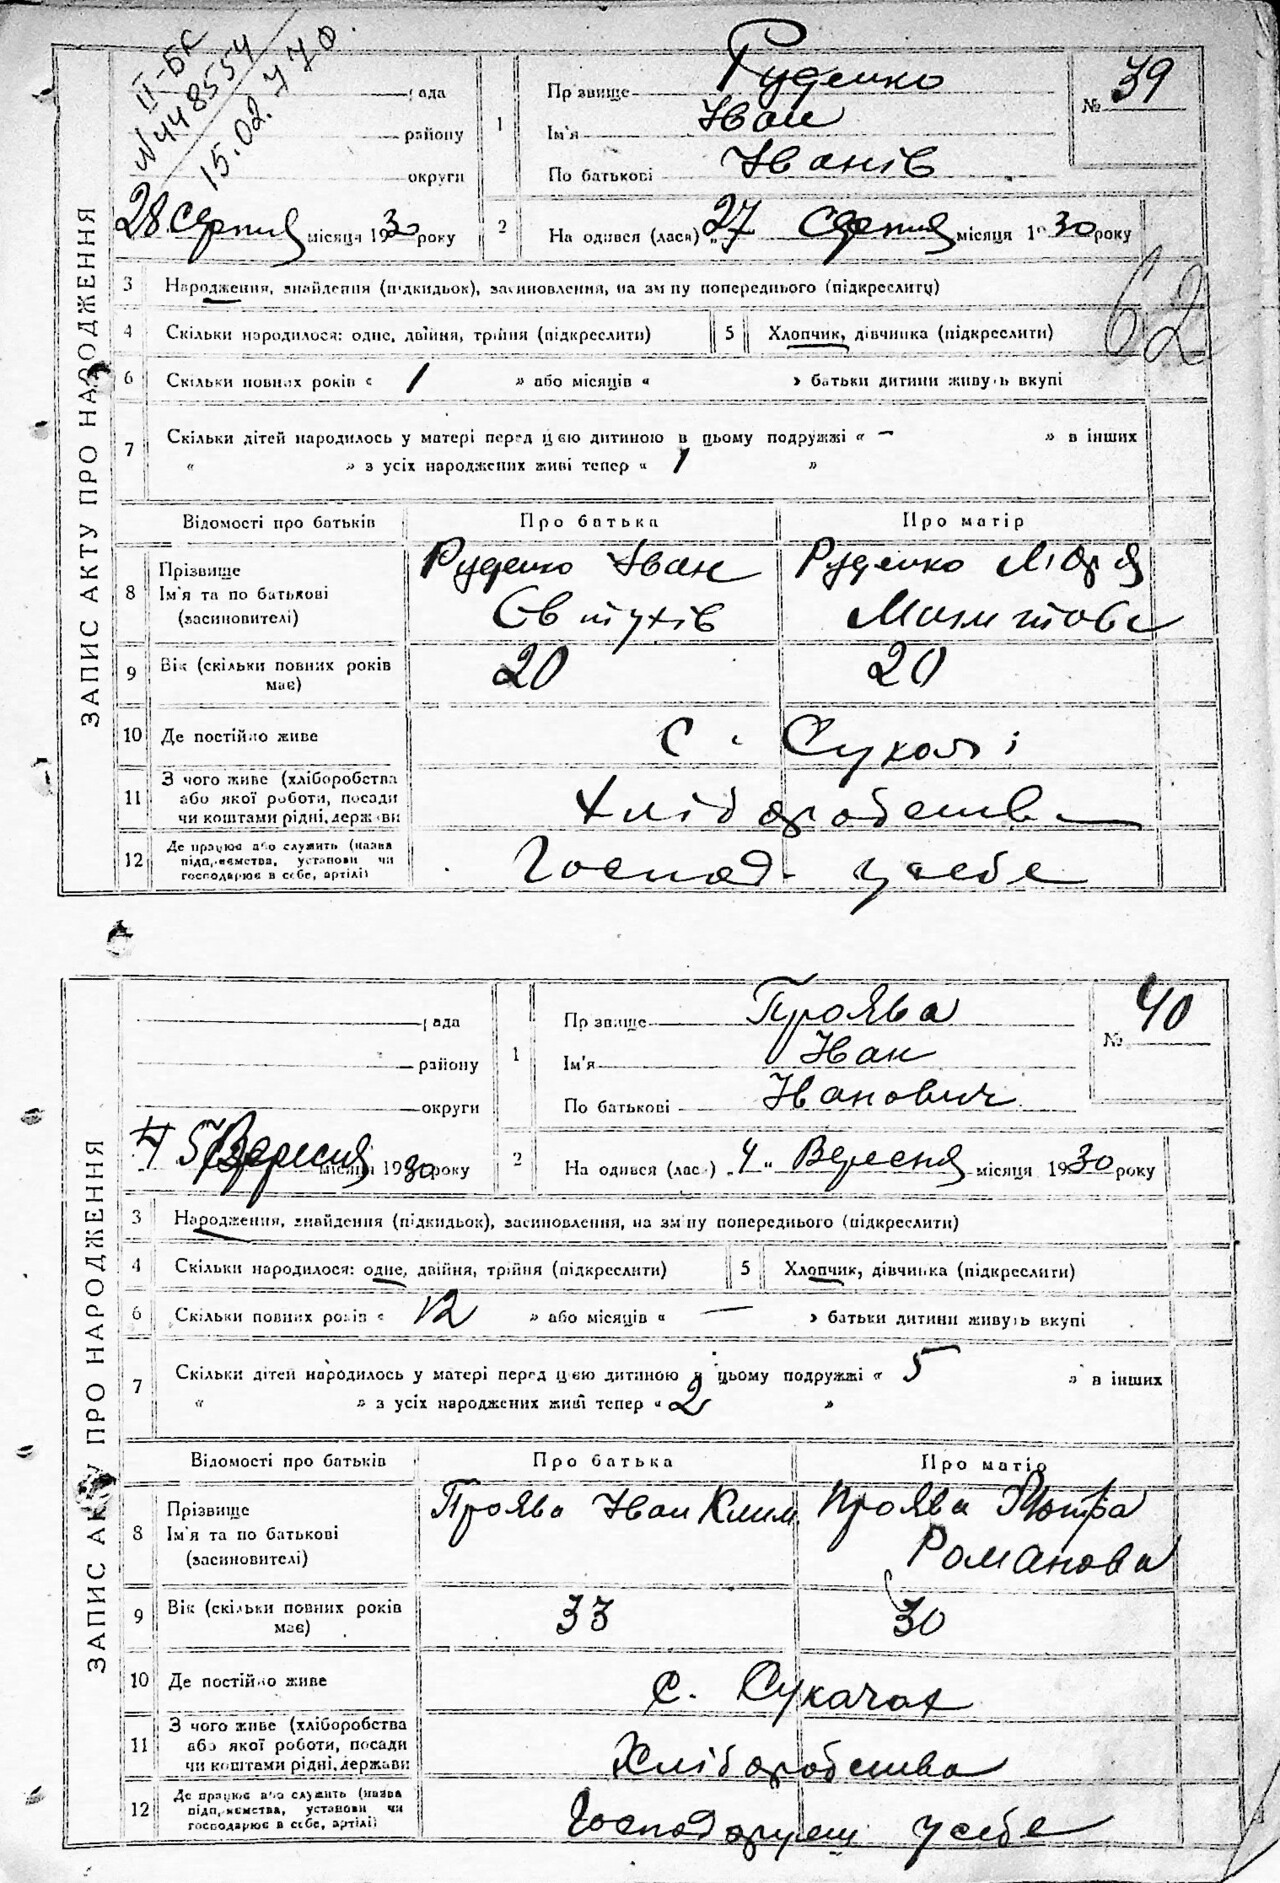 ЗАПИС АКТУ ПРО НАРОДЖЕННЯ
II-БК
N448554
15.02.77 0.
рада
району
округи
28 Серпня місяця 1930 року
1
Прізвище Руденко
Ім'я Іван
По батькові Іванів
№ 39
2
На одився (лася) „27 Серпня місяця 1930 року
62
3 Народження, знайдення (підкидьок), засиновлення, на зміну попереднього (підкреслити)
4 Скільки народилося: одне, двійня, трійня (підкреслити)
5 Хлопчик, дівчинка (підкреслити)
6 Скільки повних років « 1 » або місяців « » батьки дитини живуть вкупі
7 Скільки дітей народилось у матері перед цією дитиною в цьому подружжі « - » в інших
« » з усіх народжених живі тепер « 1 »
Відомості про батьків Про батька Про матір
8 Прізвище Ім'я та по батькові (засиновителі)
Руденко Іван
Євтухів
Руденко Марія
9 Вік (скільки повних років має) 20 20
10 Де постійно живе с. Сукачі
11 З чого живе (хліборобства або якої роботи, посади чи коштами рідні, держави Хліборобства
12 Де працює або служить (назва підприємства, установи чи господарює в себе, артілі) Господ. у себе
ЗАПИС АКТУ ПРО НАРОДЖЕННЯ
рада
району
округи
5 Вересня місяця 1930 року
1
Прізвище Проява
Ім'я Іван
По батькові Іванович
№ 40
2
На одився (лась) „4" Вересня місяця 1930 року
3 Народження, знайдення (підкидьок), засиновлення, на зміну попереднього (підкреслити)
4 Скільки народилося: одне, двійня, трійня (підкреслити)
5 Хлопчик, дівчинка (підкреслити)
6 Скільки повних років « 12 » або місяців « — » батьки дитини живуть вкупі
7 Скільки дітей народилось у матері перед цією дитиною в цьому подружжі « 5 » в інших
« » з усіх народжених живі тепер « 2 »
Відомості про батьків Про батька Про матір
8 Прізвище Ім'я та по батькові (засиновителі)
Проява Іван Клим.
Проява
Романова
9 Вік (скільки повних років має) 33 30
10 Де постійно живе с. Сукачах
11 З чого живе (хліборобства або якої роботи, посади чи коштами рідні, держави Хліборобства
12 Де працює або служить (назва підприємства, установи чи господарює в себе, артілі) Господарует у себе